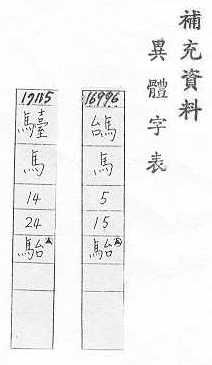 補充資料
異體字表
16996
馬
5
15
駘
17115
馬
14
24
駘